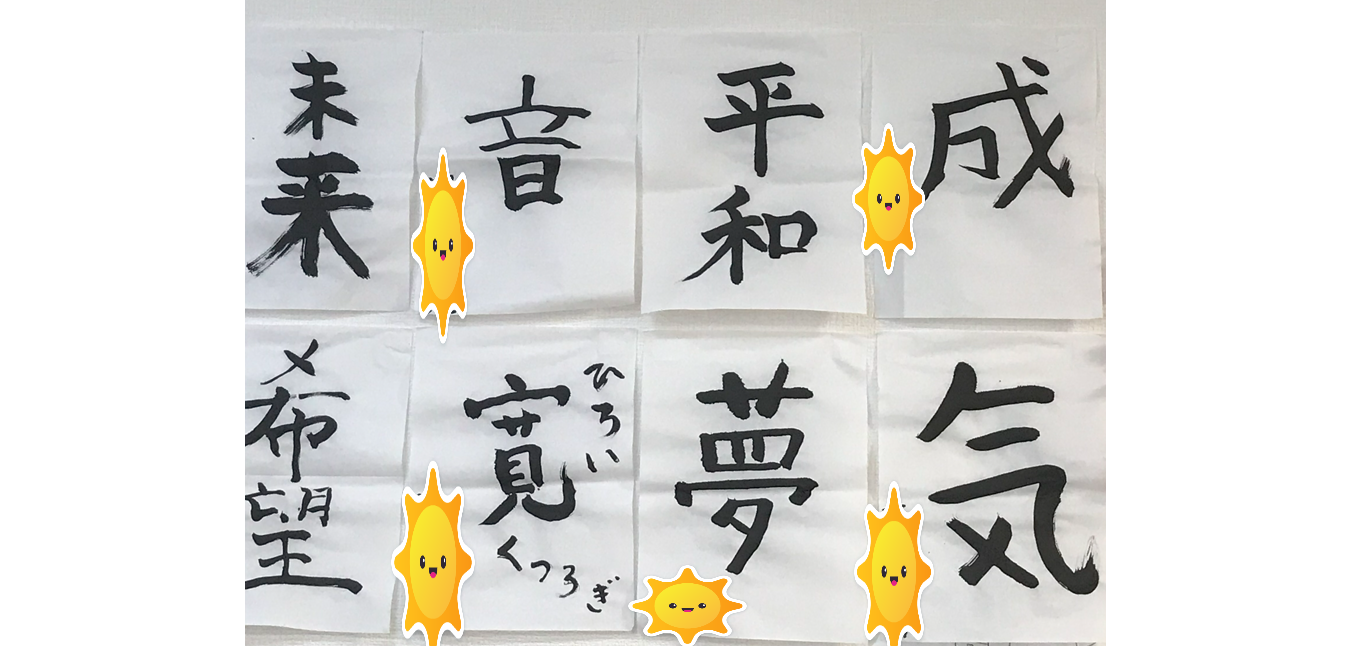 未来
音
平和
成
希望
ひろい
寛
くつろぎ
夢
気